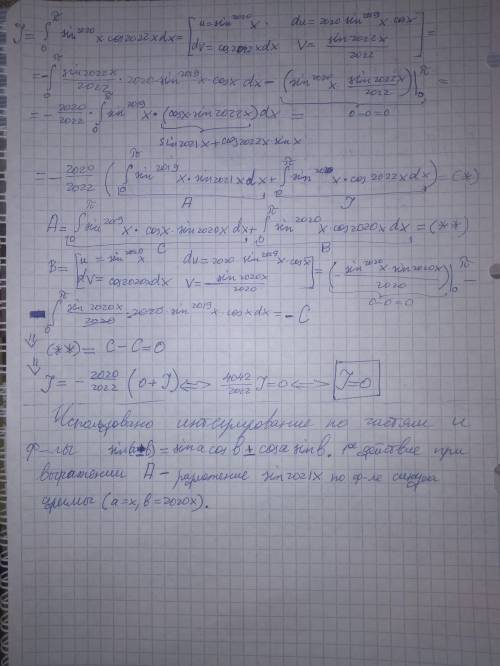 J = ∫₀^π sin²⁰²⁰x cos2022x dx = [u = sin²⁰²⁰x, du = 2020 · sin²⁰¹⁹x · cosx
dV = cos2022x dx V = sin2022x/2022] =
= -∫₀^π sin2022x/2022 · 2020 · sin²⁰¹⁹x · cosx dx - (sin²⁰²⁰x · sin2022x/2022)|₀^π =
0-0=0
= -2020/2022 · ∫₀^π sin²⁰¹⁹x · (cosx · sin2022x) dx =
sin2021x + cos2022x · sinx
= -2020/2022 (∫₀^π sin²⁰¹⁹x · sin2021x dx + ∫₀^π sin²⁰²⁰x · cos2022x dx) = (*)
A J
A = ∫₀^π sin²⁰¹⁹x · cosx · sin2020x dx + ∫₀^π sin²⁰²⁰x cos2020x dx = (**)
C B
B = [u = sin²⁰²⁰x du = 2020 · sin²⁰¹⁹x · cosx
dV = cos2020x dx V = -sin2020x/2020] = (-sin²⁰²⁰x · sin2020x/2020)|₀^π -
0-0=0
- ∫₀^π sin2020x/2020 · 2020 · sin²⁰¹⁹x · cosx dx = -C
⇓ (**) = C - C = 0
⇓
J = -2020/2022 (0 + J) ⇔ 4042/2022 J = 0 ⇔ J = 0
Использовано интегрирование по частям и
ф-лы sin(a±b) = sina cosb ± cosa sinb. действие при
выражении A - разложение sin2021x по ф-ле синуса
(a=x, b=2020x).